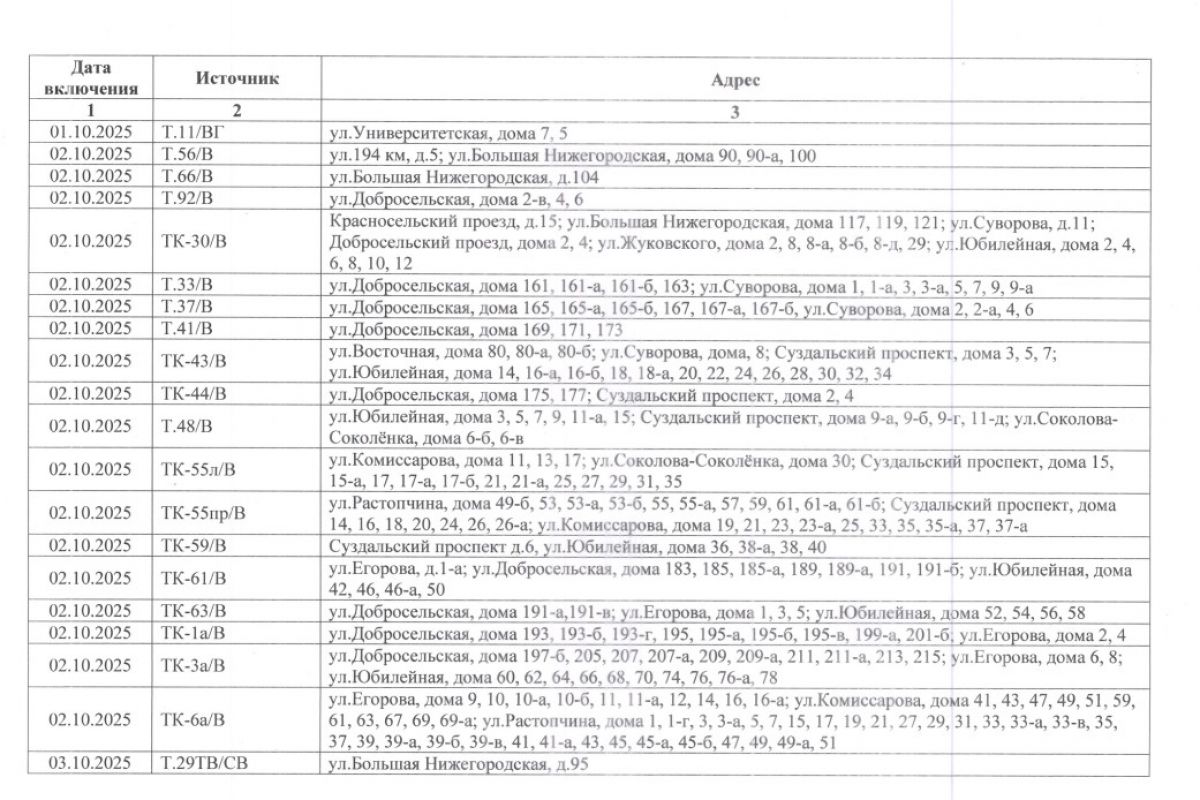 Дата включения Источник Адрес
1 2 3
01.10.2025 Т.11/ВГ ул.Университетская, дома 7, 5
02.10.2025 Т.56/В ул.194 км, д.5; ул.Большая Нижегородская, дома 90, 90-а, 100
02.10.2025 Т.66/В ул.Большая Нижегородская, д.104
02.10.2025 Т.92/В ул.Добросельская, дома 2-в, 4, 6
02.10.2025 ТК-30/В Красносельский проезд, д.15; ул.Большая Нижегородская, дома 117, 119, 121; ул.Суворова, д.11;
Добросельский проезд, дома 2, 4; ул.Жуковского, дома 2, 8, 8-а, 8-б, 8-д, 29; ул.Юбилейная, дома 2, 4,
6, 8, 10, 12
02.10.2025 Т.33/В ул.Добросельская, дома 161, 161-а, 161-б, 163; ул.Суворова, дома 1, 1-а, 3, 3-а, 5, 7, 9, 9-а
02.10.2025 Т.37/В ул.Добросельская, дома 165, 165-а, 165-б, 167, 167-а, 167-б, ул.Суворова, дома 2, 2-а, 4, 6
02.10.2025 Т.41/В ул.Добросельская, дома 169, 171, 173
02.10.2025 ТК-43/В ул.Восточная, дома 80, 80-а, 80-б; ул.Суворова, дома, 8; Суздальский проспект, дома 3, 5, 7;
ул.Юбилейная, дома 14, 16-а, 16-б, 18, 18-а, 20, 22, 24, 26, 28, 30, 32, 34
02.10.2025 ТК-44/В ул.Добросельская, дома 175, 177; Суздальский проспект, дома 2, 4
02.10.2025 Т.48/В ул.Юбилейная, дома 3, 5, 7, 9, 11-а, 15; Суздальский проспект, дома 9-а, 9-б, 9-г, 11-д; ул.Соколова-
Соколёнка, дома 6-б, 6-в
02.10.2025 ТК-55л/В ул.Комиссарова, дома 11, 13, 17; ул.Соколова-Соколёнка, дома 30; Суздальский проспект, дома 15,
15-а, 17, 17-а, 17-б, 21, 21-а, 25, 27, 29, 31, 35
02.10.2025 ТК-55пр/В ул.Растопчина, дома 49-б, 53, 53-а, 53-б, 55, 55-а, 57, 59, 61, 61-а, 61-б; Суздальский проспект, дома
14, 16, 18, 20, 24, 26, 26-а; ул.Комиссарова, дома 19, 21, 23, 23-а, 25, 33, 35, 35-а, 37, 37-а
02.10.2025 ТК-59/В Суздальский проспект д.6, ул.Юбилейная, дома 36, 38-а, 38, 40
02.10.2025 ТК-61/В ул.Егорова, д.1-а; ул.Добросельская, дома 183, 185, 185-а, 189, 189-а, 191, 191-б; ул.Юбилейная, дома
42, 46, 46-а, 50
02.10.2025 ТК-63/В ул.Добросельская, дома 191-а,191-в; ул.Егорова, дома 1, 3, 5; ул.Юбилейная, дома 52, 54, 56, 58
02.10.2025 ТК-1а/В ул.Добросельская, дома 193, 193-б, 193-г, 195, 195-а, 195-б, 195-в, 199-а, 201-б; ул.Егорова, дома 2, 4
02.10.2025 ТК-3а/В ул.Добросельская, дома 197-б, 205, 207, 207-а, 209, 209-а, 211, 211-а, 213, 215; ул.Егорова, дома 6, 8;
ул.Юбилейная, дома 60, 62, 64, 66, 68, 70, 74, 76, 76-а, 78
02.10.2025 ТК-6а/В ул.Егорова, дома 9, 10, 10-а, 10-б, 11, 11-а, 12, 14, 16, 16-а; ул.Комиссарова, дома 41, 43, 47, 49, 51, 59,
61, 63, 67, 69, 69-а; ул.Растопчина, дома 1, 1-г, 3, 3-а, 5, 7, 15, 17, 19, 21, 27, 29, 31, 33, 33-а, 33-в, 35,
37, 39, 39-а, 39-б, 39-в, 41, 41-а, 43, 45, 45-а, 45-б, 47, 49, 49-а, 51
03.10.2025 Т.29ТВ/СВ ул.Большая Нижегородская, д.95